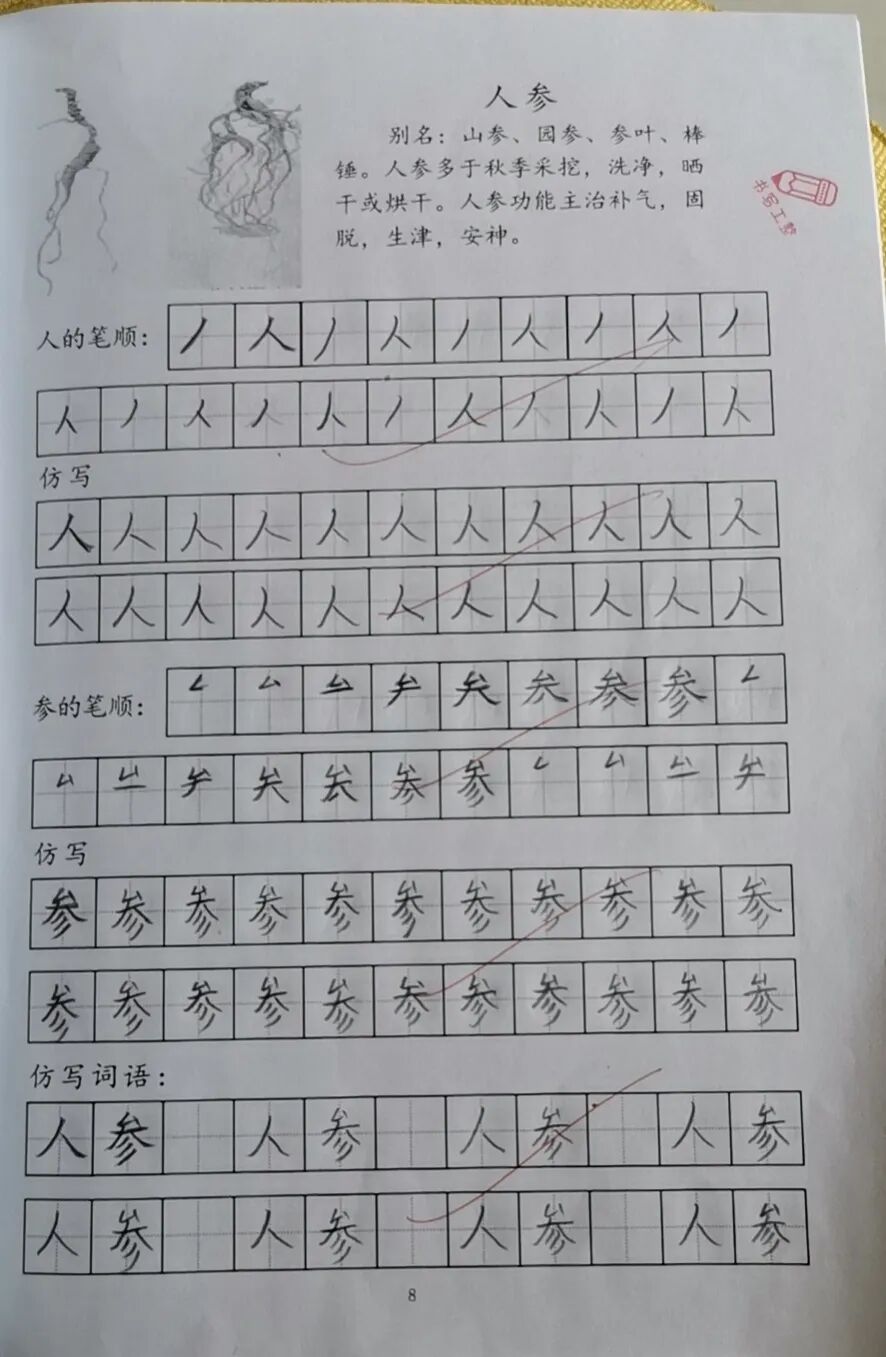 人参
别名：山参、园参、参叶、棒
锤。人参多于秋季采挖，洗净，晒
干或烘干。人参功能主治补气，固
脱，生津，安神。
书写工整
人的笔顺：丿 人 丿 人 丿 人 丿 人 丿
人 丿 人 丿 人 丿 人 丿 人 丿 人
仿写
人 人 人 人 人 人 人 人 人 人 人
人 人 人 人 人 人 人 人 人 人 人
参的笔顺：
参 参
仿写
参 参 参 参 参 参 参 参 参 参 参
参 参 参 参 参 参 参 参 参 参 参
仿写词语：
人 参 人 参 人 参 人 参
人 参 人 参 人 参 人 参
8